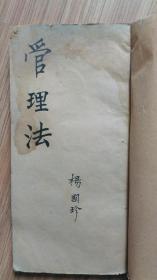 管理法
楊國珍